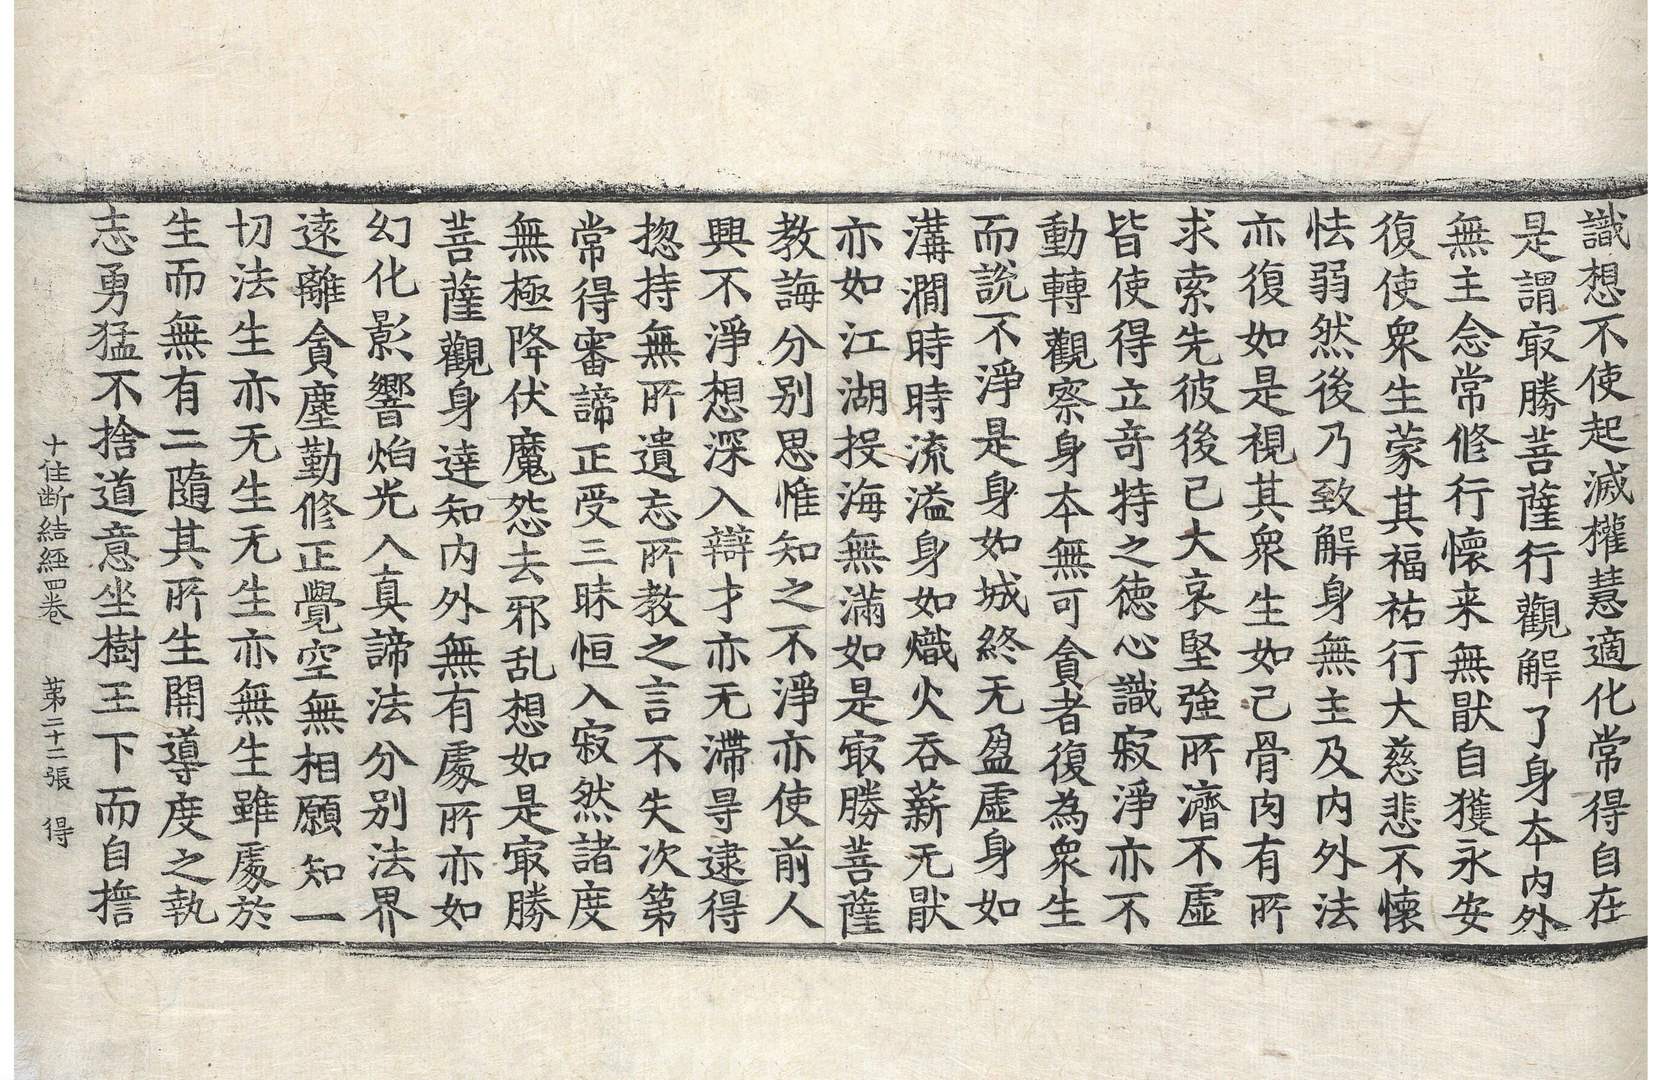 識想不使起滅權慧適化常得自在
是謂㝡勝菩薩行觀解了身本內外
無主念常修行懷来無猒自獲永安
復使衆生蒙其福祐行大慈悲不懷
怯弱然後乃致解身無主及内外法
亦復如是視其衆生如己骨肉有所
求索先彼後己大哀堅強所濟不虛
皆使得立竒特之徳心識寂淨亦不
動轉觀察身本無可貪者復為衆生
而說不淨是身如城終无盈虛身如
溝澗時時流溢身如熾火吞薪无猒
亦如江湖投海無滿如是㝡勝菩薩
教誨分别思惟知之不淨亦使前人
興不淨想深入辯才亦无滯㝵逮得
揔持無所遺忘所教之言不失次第
常得審諦正受三昧恒入寂然諸度
無極降伏魔怨去邪乱想如是㝡勝
菩薩觀身達知内外無有處所亦如
幻化影響焰光入真諦法分别法界
遠離貪塵勤修正覺空無相願知一
切法生亦无生无生亦無生雖處於
生而無有二隨其所生開導度之執
志勇猛不捨道意坐樹王下而自擔
十住断結經四卷　苐二十二張　得